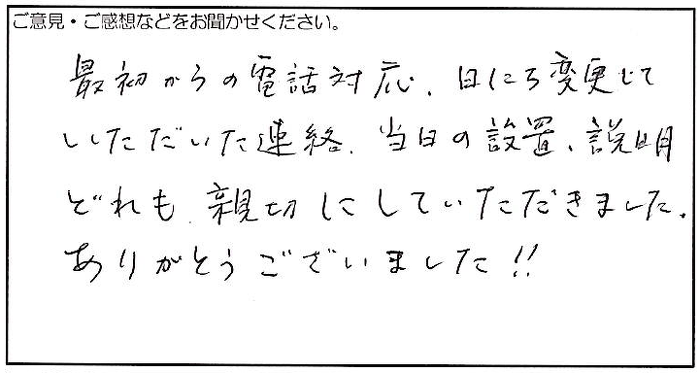 ご意見・ご感想などをお聞かせください。
最初からの電話対応、日にち変更して
いただいた連絡、当日の設置、説明
どれも親切にしていただきました。
ありがとうございました!!